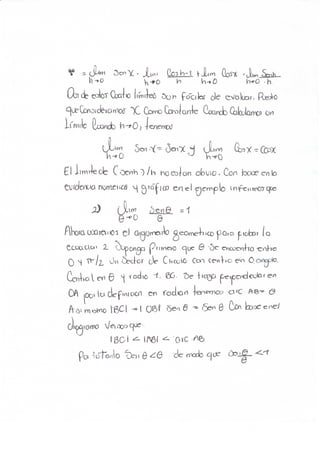 = Lim Sen X · Lim Cos h-1 + Lim Cos x · Lim Sen h
h→0 h→0 h h→0 h→0 h
Dos de estos Cuatro limites son Faciles de evaluar. Puesto
que Consideramos X Como Constante Cuando Calculamos un
Limite Cuando h→0, tenemos
Lim Sen x = Sen X y Lim Cos x = Cos x
h→0 h→0
El limite de (Sen h)/h no es tan obvio. Con base en la
evidencia numerica y grafica en el ejemplo inferimos que
2) Lim Sen θ = 1
θ→0 θ
Ahora usaremos el argumento geometrico para probar la
ecuacion 2. Suponga Primero que θ se encuentra entre
0 y π/2 Un Sector de Circulo con centro en O angulo
Central en θ y radio 1. BC. Se traza perpendicular en
OA por la definicion en radian tenemos arc AB = θ
Asi mismo |BC| = |OB| Sen θ = Sen θ Con base en el
diagrama Vemos que
|BC| < |AB| < arc AB
Por lo tanto Sen θ < θ de modo que Sen θ < 1
θ